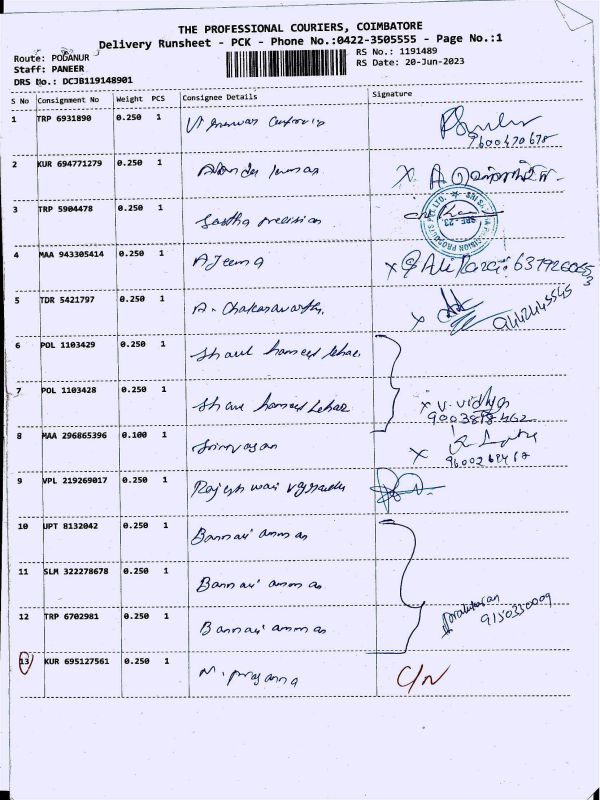 THE PROFESSIONAL COURIERS, COIMBATORE
Delivery Runsheet - PCK - Phone No.:0422-3505555 - Page No.:1
Route: PODANUR RS No.: 1191489
Staff: PANEER RS Date: 20-Jun-2023
DRS No.: DCJB119148901
S No Consignment No Weight PCS Consignee Details Signature
1 TRP 6931890 0.250 1
9600470678
2 KUR 694771279 0.250 1 X A
3 TRP 5904478 0.250 1 Sastha Precision
4 MAA 943305414 0.250 1 A Jeema X
5 TDR 5421797 0.250 1 A. Chakaravarthi X 9442445545
6 POL 1103429 0.250 1 Shaul hameed
7 POL 1103428 0.250 1 Shaul hameed X V. Vidhya
9003898462
8 MAA 296865396 0.100 1 Srinivasan X
9600268468
9 VPL 219269017 0.250 1 Rajeshwari
10 UPT 8132042 0.250 1 Bannari amman
11 SLM 322278678 0.250 1 Bannari amman
12 TRP 6702981 0.250 1 Bannari amman 9150350009
13 KUR 695127561 0.250 1 M. Prasanna C/N